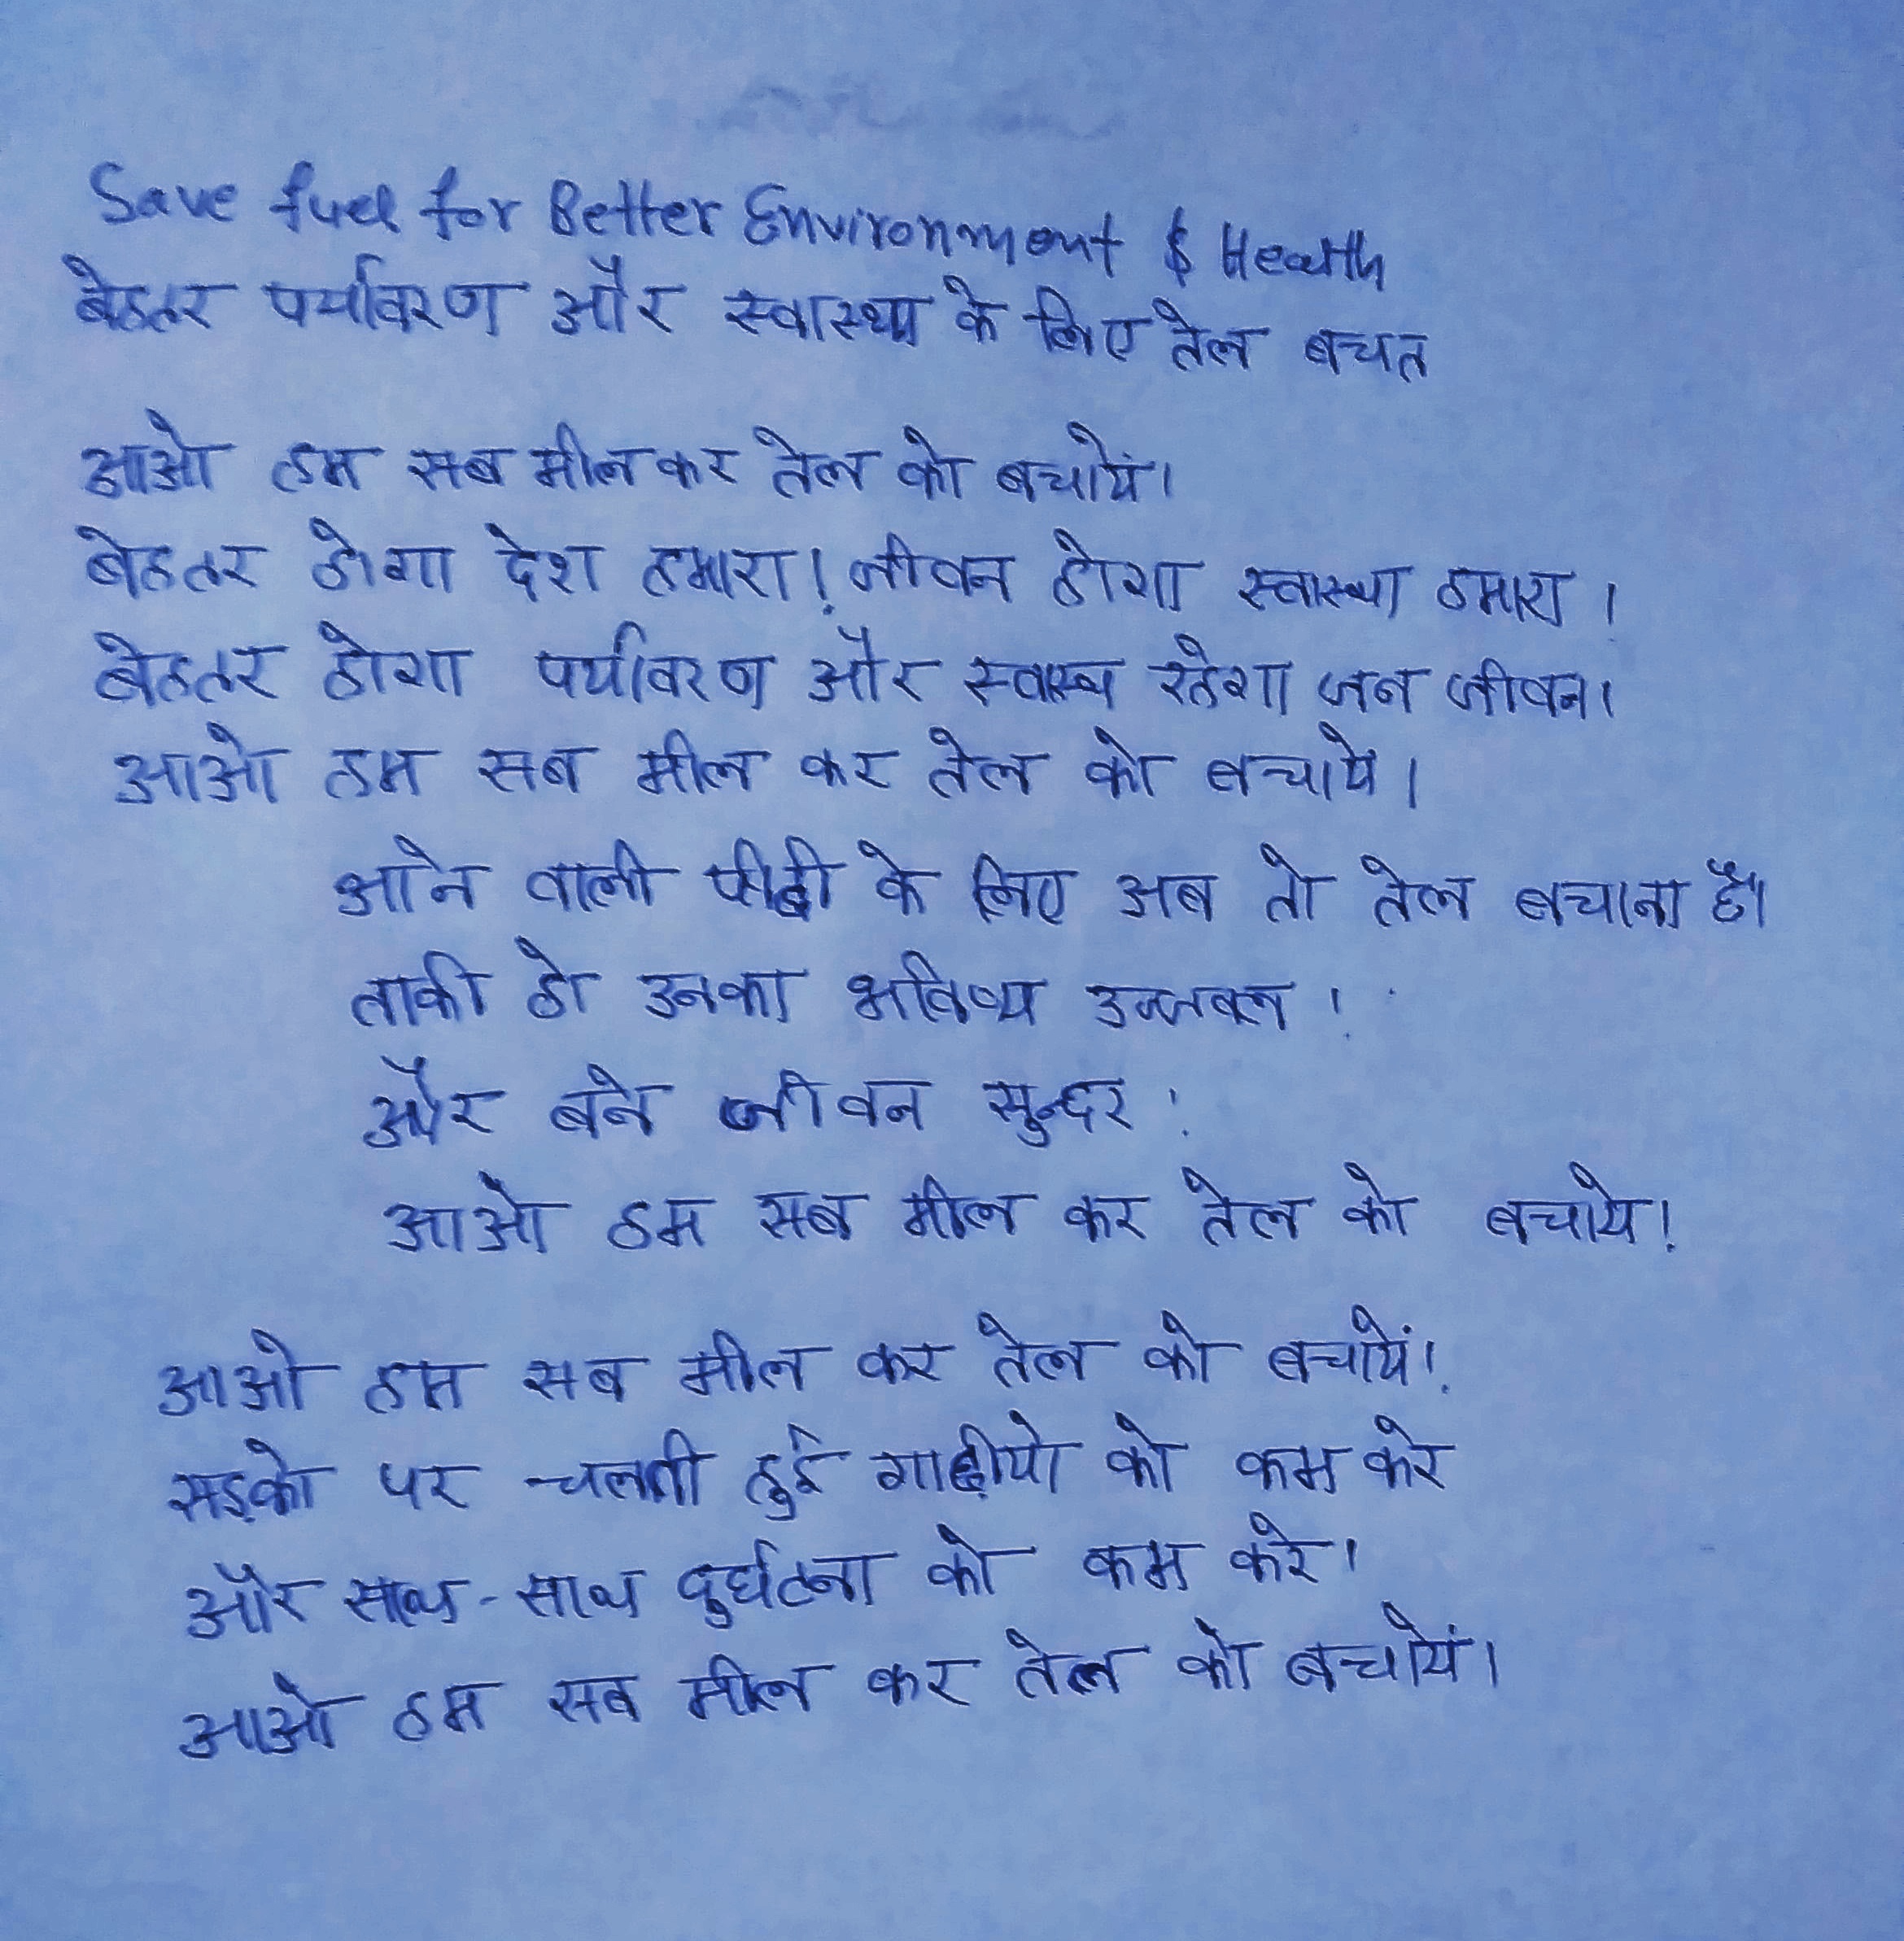 Save fuel for Better Environment & Health
बेहतर पर्यावरण और स्वास्थ्य के लिए तेल बचत
आओ हम सब मील कर तेल को बचायें।
बेहतर होगा देश हमारा! जीवन होगा स्वास्थ्य हमारा।
बेहतर होगा पर्यावरण और स्वास्थ्य रहेगा जन जीवन।
आओ हम सब मील कर तेल को बचाये।
आने वाली पीढ़ी के लिए अब तो तेल बचाना है।
ताकी हो उनका भविष्य उज्जवल!
और बने जीवन सुन्दर!
आओ हम सब मील कर तेल को बचाये!
आओ हम सब मील कर तेल को बचायें!
सड़को पर चलती हुई गाड़ीयो को कम करे
और साथ-साथ दुर्घटना को कम करे।
आओ हम सब मील कर तेल को बचायें।